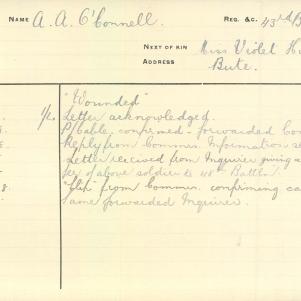 NAME A. A. O'Connell. REG. &C. 43rd B
NEXT OF KIN Miss Violet H
ADDRESS Bute.
"Wounded"
Letter acknowledged.
P/Cable, confirmed - forwarded Com
Reply from Commr. Information se
Letter received from Inquirer giving a
fer of above soldier to 48th Battn.
"Slip" from Commr. confirming ca
same forwarded Inquirer.